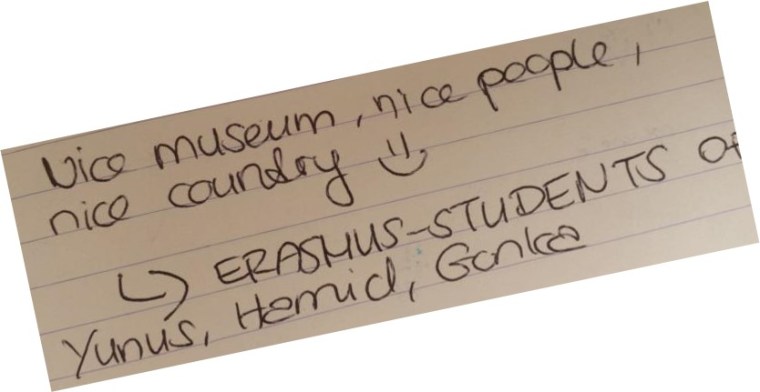 Nice museum, nice people,
nice coundry
ERASMUS-STUDENTS of
Yunus, Hemid, Gonka